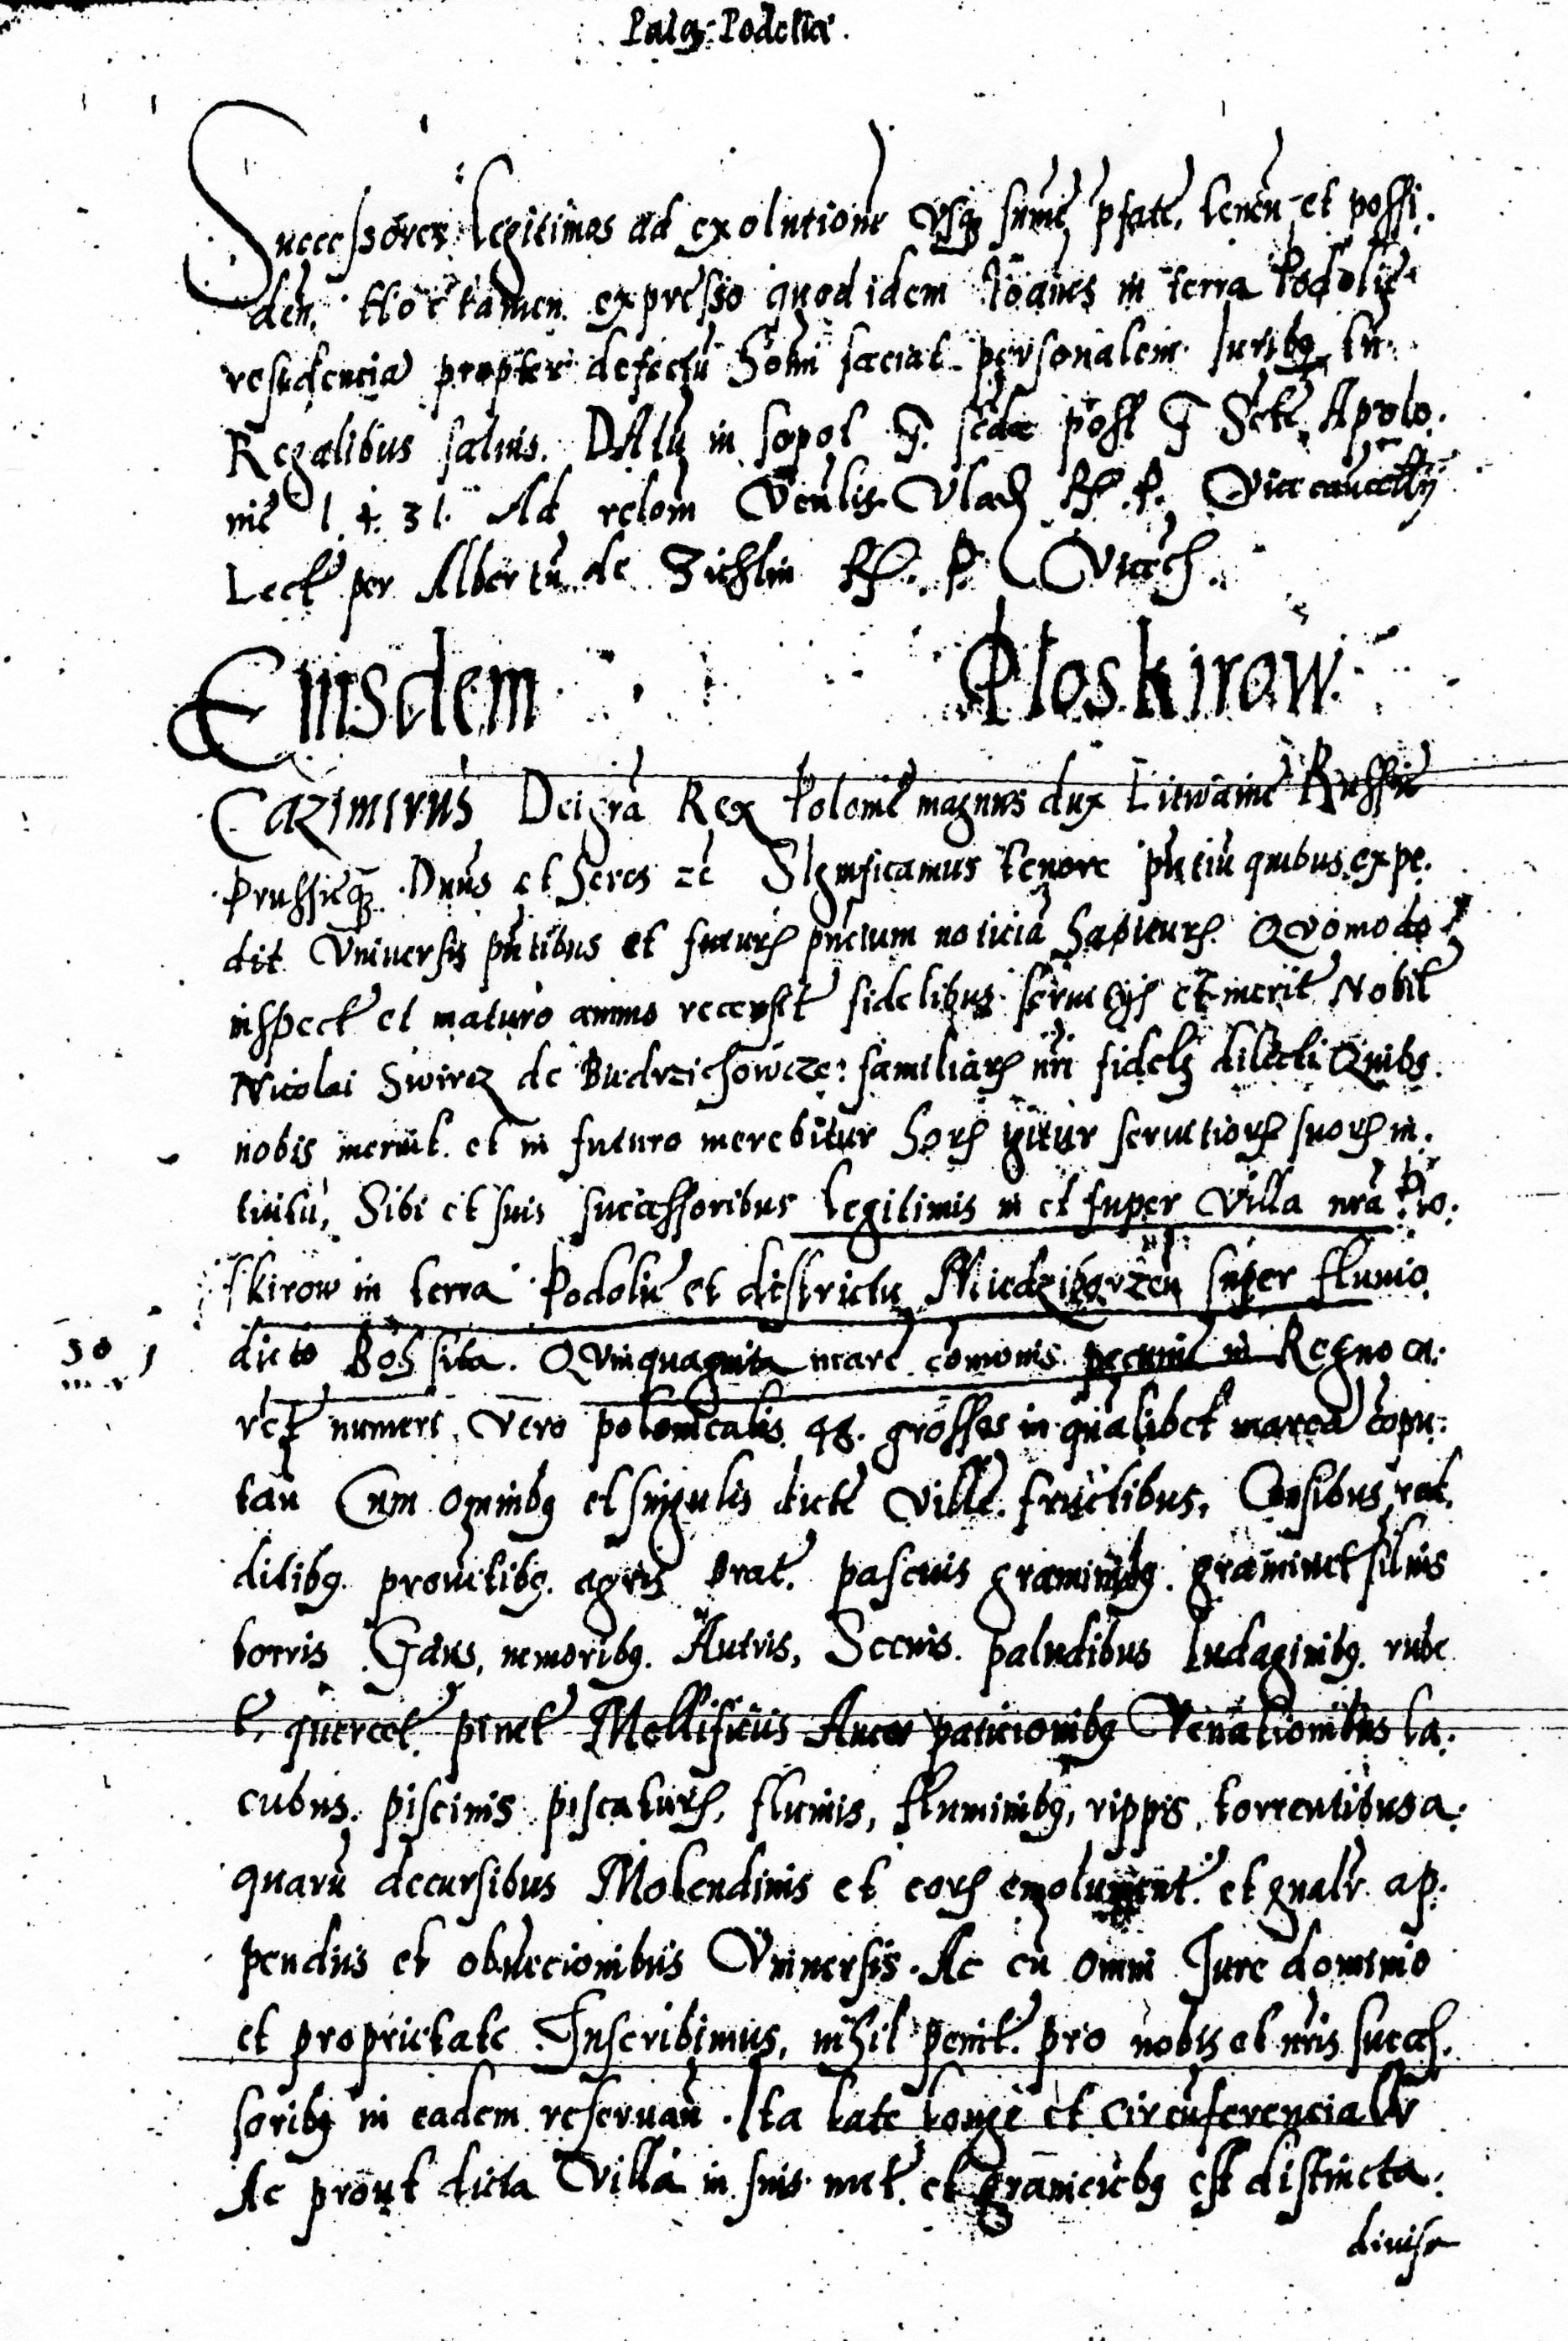 Palaᵗ: Podoliæ.
Successores Legitimos ad exolutionē Vsq̃ sum̄e p̄fatē, tenēn̄ et possi.
den̄. Hoc tamen expresso quod idem Ioānes in terra Podolie
residencia propter defectū Hom̄ faciat personalem Iuribq̃
Regalibus saluis. DAtū in fer. scda post Scte Apolo.
nie 1.4.31. Ad relom̄ Vlad R. P. Vicecancellij
Lect per Albertū de Zichlin R. P. Vicech.
Eiusdem Ploskiraw.
Cazimirus Dei grā Rex Polonie magnus dux Litwānie Russie
Prussieq̃. Dn̄us et Heres zc̄ SIgnificamus tenore pn̄tiū quibus expe.
dit Vniuersis pn̄tibus et futurꝝ pn̄cium noticiā Habiturꝝ. QVomodo
inspect et maturo animo recensit fidelibus seruicijs et merit Nobil
Nicolai Swircz de Budrzichowcze: familiarꝝ nr̄i fidelꝫ dilecti Quibꝫ.
nobis meruit. et in futuro merebitur Horꝝ igitur seruitiorꝝ suorꝝ in.
tuitu, Sibi et suis successoribus legitimis in et super Villa nrā Plo.
skirow in terra Podolie et districtu Miedzibozen super fluuio
50 dicto Boh sita. QVinquaginta marc. com̄onis pecunie in Regno cu.
reꝫ numeri vero polonicalis 48. grosses in qualibet marca copu.
tan̄ Cum omnibꝫ et singulis dicte Ville. fructibus, Censibus, red.
ditibꝫ. prouetibꝫ. agris Prat. pascuis graminibꝫ. graminet siluis
borris Gaus, nemoribꝫ. Autris, Seccuis. paludibus Indaginibꝫ. rube
t. quercet. pinet Mellificiis Aucupaticionibꝫ Venationibus la.
cubus. piscinis piscaturꝝ, fluuiis, fluminibꝫ, rippis, torrentibus a.
quarū decursibus Molendinis et eorꝝ emolument. et gnalr. ap.
pendiis et obuecionibus Vniuersis. Ac cū omni Iure dominio
et proprietate Inscribimus, nihil penit. pro nobis et nris succes.
soribꝫ in eadem reseruan̄. Ita late longe et circūferencialr
Ac prout dicta Villa in suis met. et graniciebꝫ est distincta.
diuisa